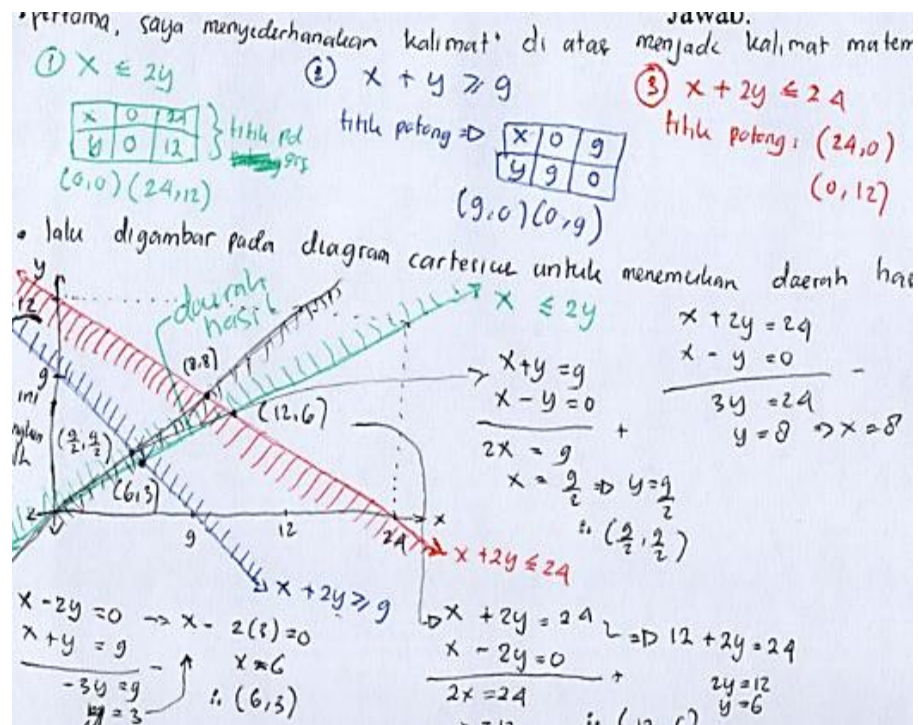 Jawab.
• pertama, saya menyederhanakan kalimat² di atas menjadi kalimat matem
① x ≤ 2y
x 0 24
y 0 12
titik pd
grs
(0,0) (24,12)
② x + y ≥ 9
titik potong => x 0 9
y 9 0
(9,0) (0,9)
③ x + 2y ≤ 24
titik potong : (24,0)
(0,12)
• lalu digambar pada diagram cartecius untuk menemukan daerah has
y
12
9
ini
daerah
hasil
x ≤ 2y
(8.8)
(12,6)
(9/2, 9/2)
(6,3)
z
9
12
24
x
x + 2y ≤ 24
x + 2y ≥ 9
x + y = 9
x - y = 0
+
2x = 9
x = 9/2 => y = 9/2
∴ (9/2, 9/2)
x + 2y = 24
x - y = 0
-
3y = 24
y = 8 => x = 8
x - 2y = 0 -> x - 2(3) = 0
x + y = 9
-
-3y = 9
y = 3
x = 6
∴ (6,3)
x + 2y = 24
x - 2y = 0
+
2x = 24
=> 12 + 2y = 24
2y = 12
y = 6